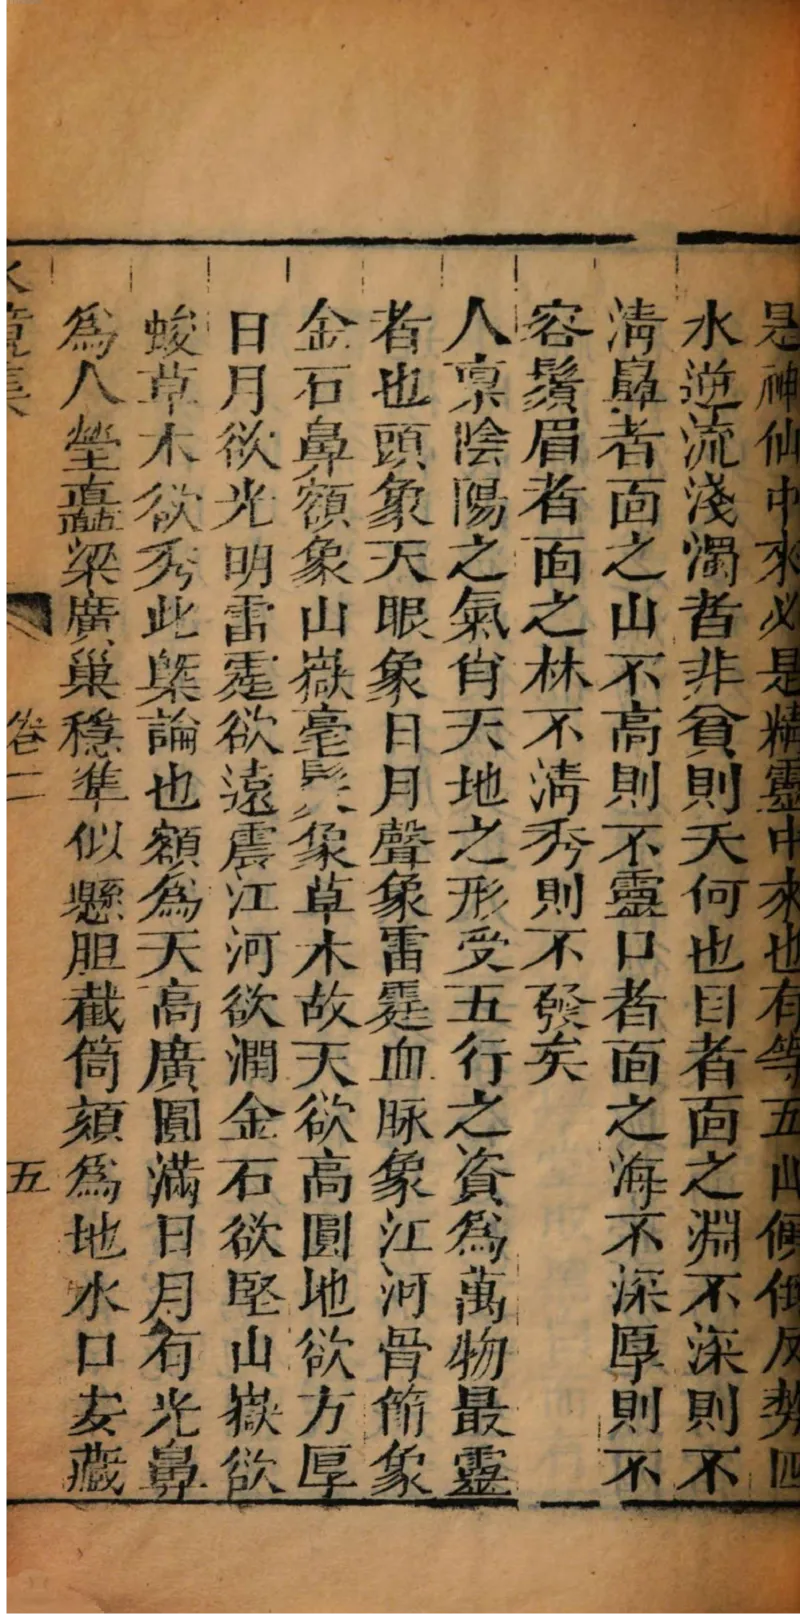 是神仙中來必是精靈中來也有等五山傾倒反勢四
水逆流淺濁者非貧則夭何也目者面之淵不深則不
淸鼻者面之山不高則不靈口者面之海不深厚則不
容鬚眉者面之林不淸秀則不發矣
人禀陰陽之氣肖天地之形受五行之資爲萬物最靈
者也頭象天眼象日月聲象雷霆血脉象江河骨節象
金石鼻額象山嶽毫髮象草木故天欲高圓地欲方厚
日月欲光明雷霆欲遠震江河欲潤金石欲堅山嶽欲
峻草木欲秀此槩論也額爲天高廣圓滿日月有光鼻
爲人瑩直梁廣巢穩準似懸胆截筒頦爲地水口友藏
水鏡集
卷二
五